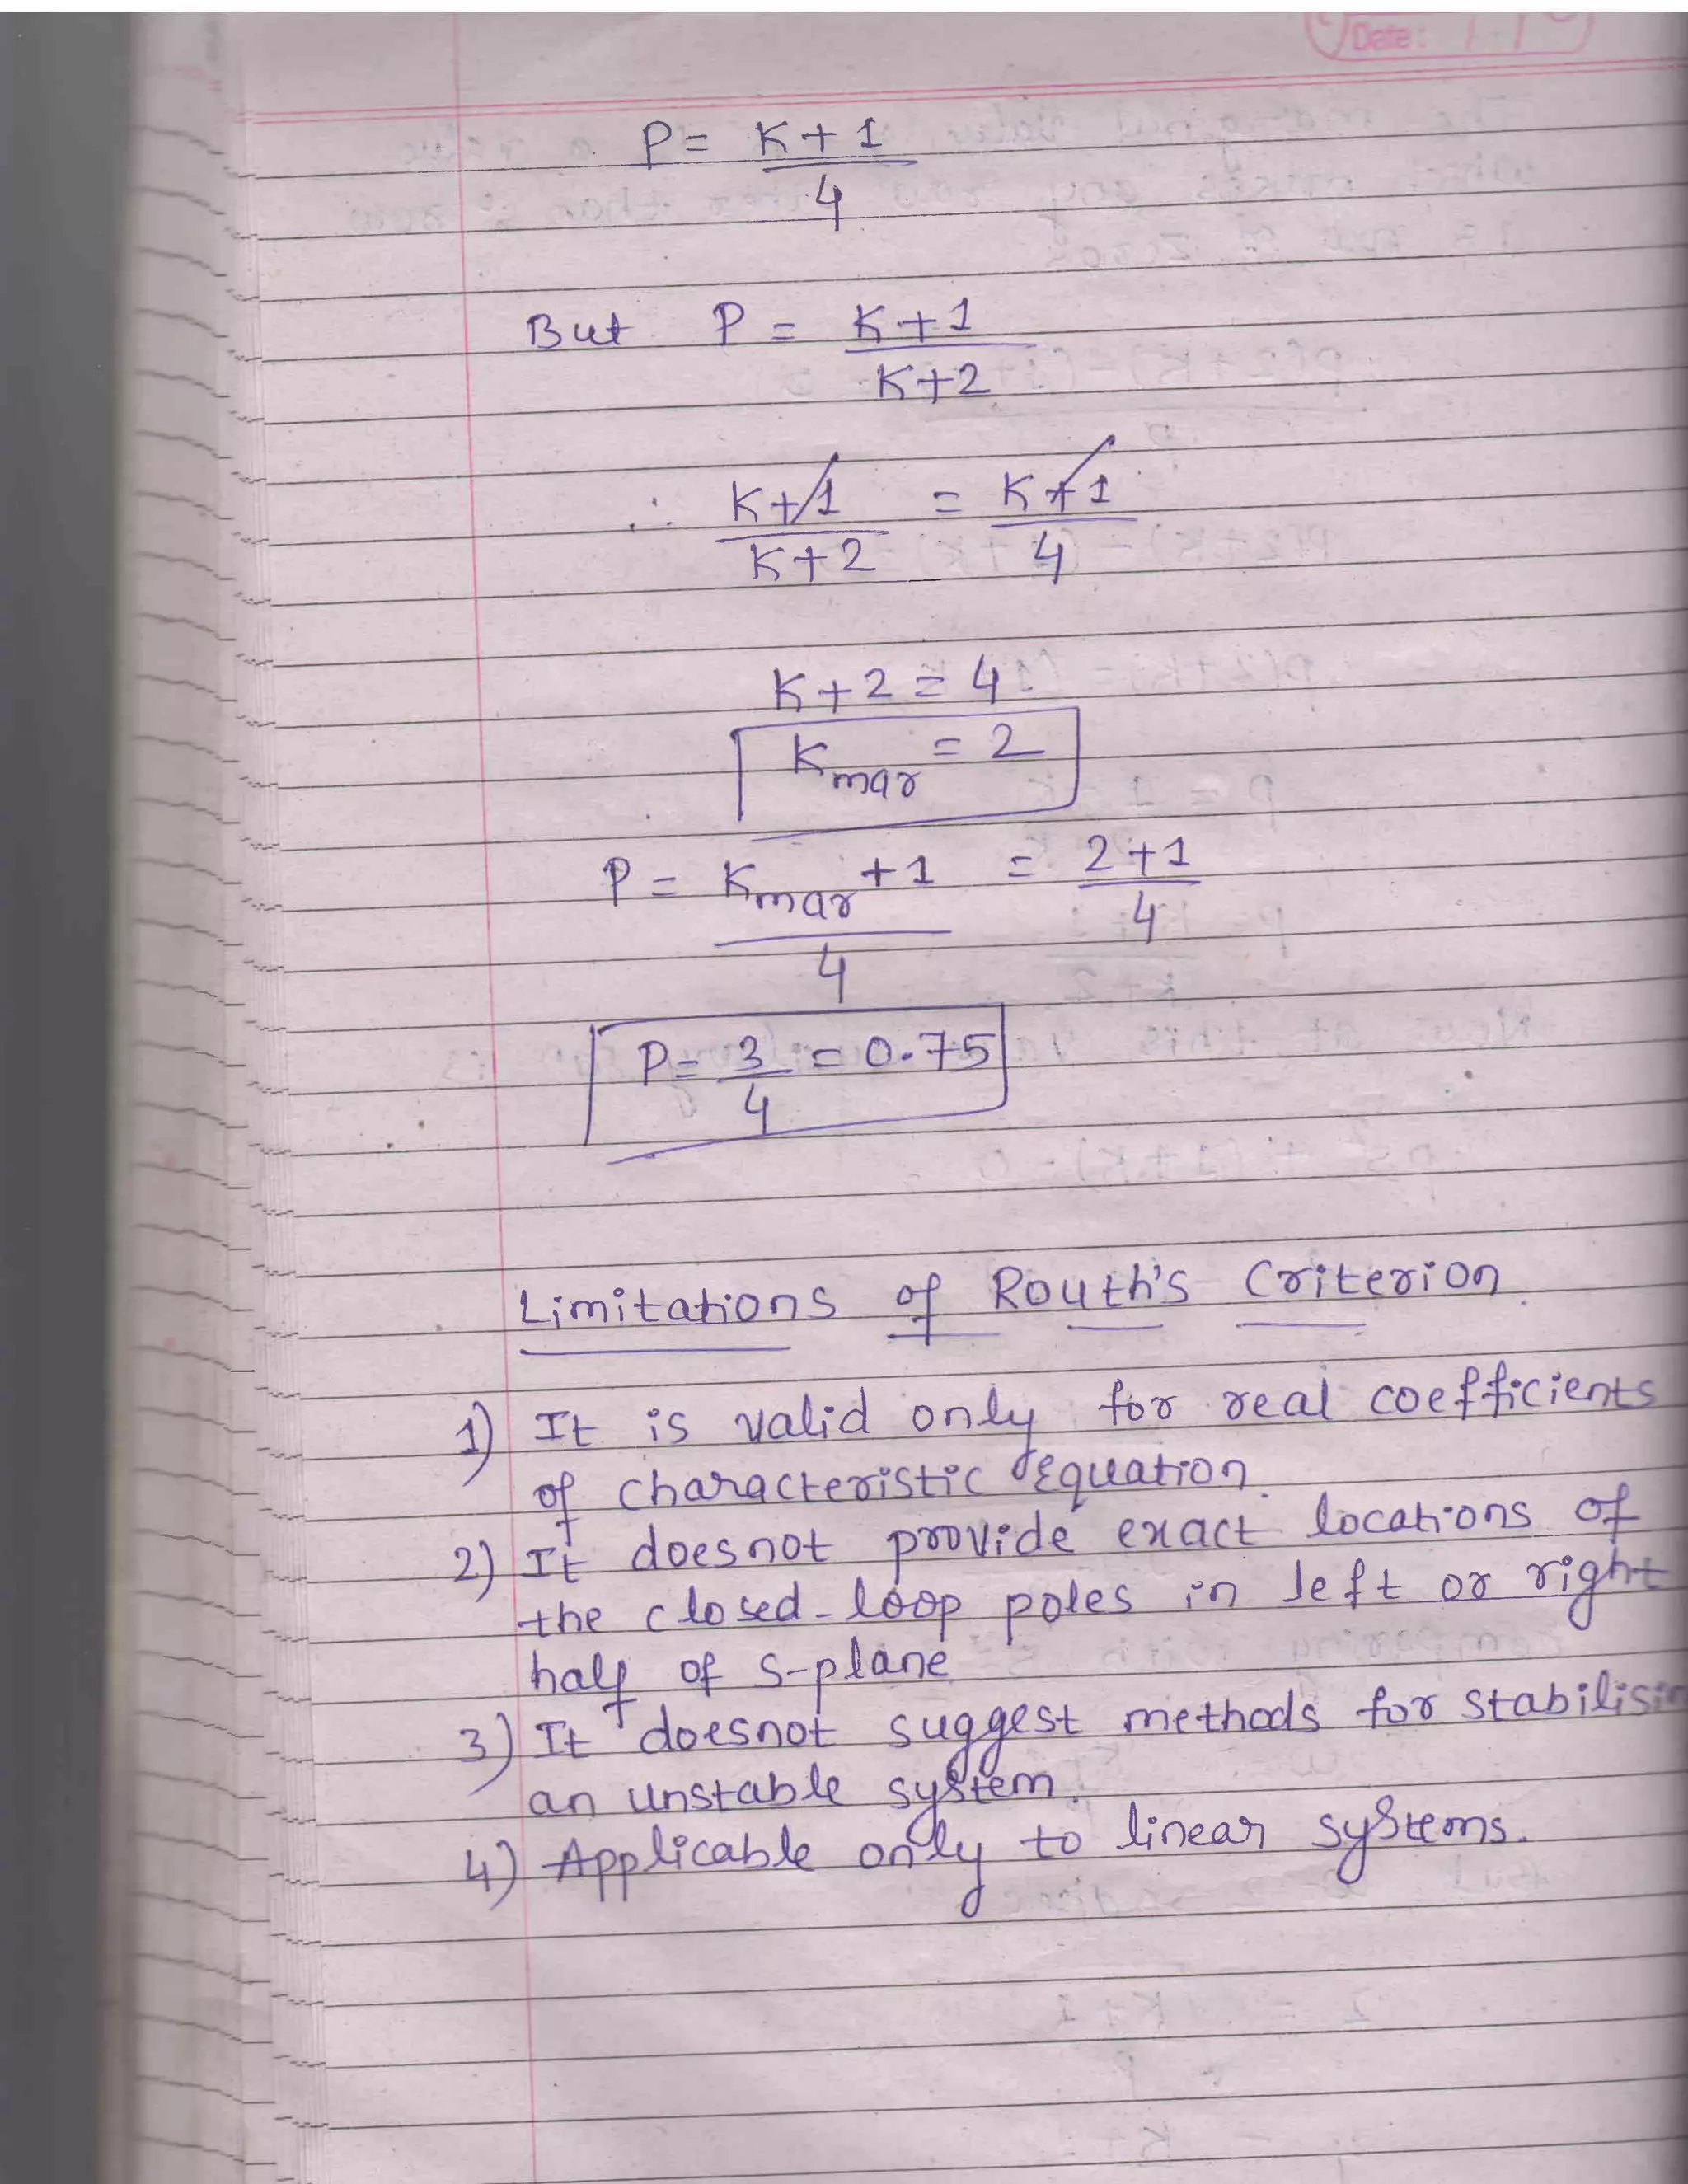 Date:
P = K+1
4
But P = K+1
K+2
∴ K+1 = K+1
K+2 4
K+2 = 4
Kmar = 2
P = Kmar +1 = 2+1
4 4
P = 3 = 0.75
4
Limitations of Routh's Criterion
1) It is valid only for real coefficients
of characteristic equation.
2) It doesnot provide exact locations of
the closed-loop poles in left or right
half of s-plane
3) It doesnot suggest methods for stabilisin
an unstable system.
4) Applicable only to linear systems.